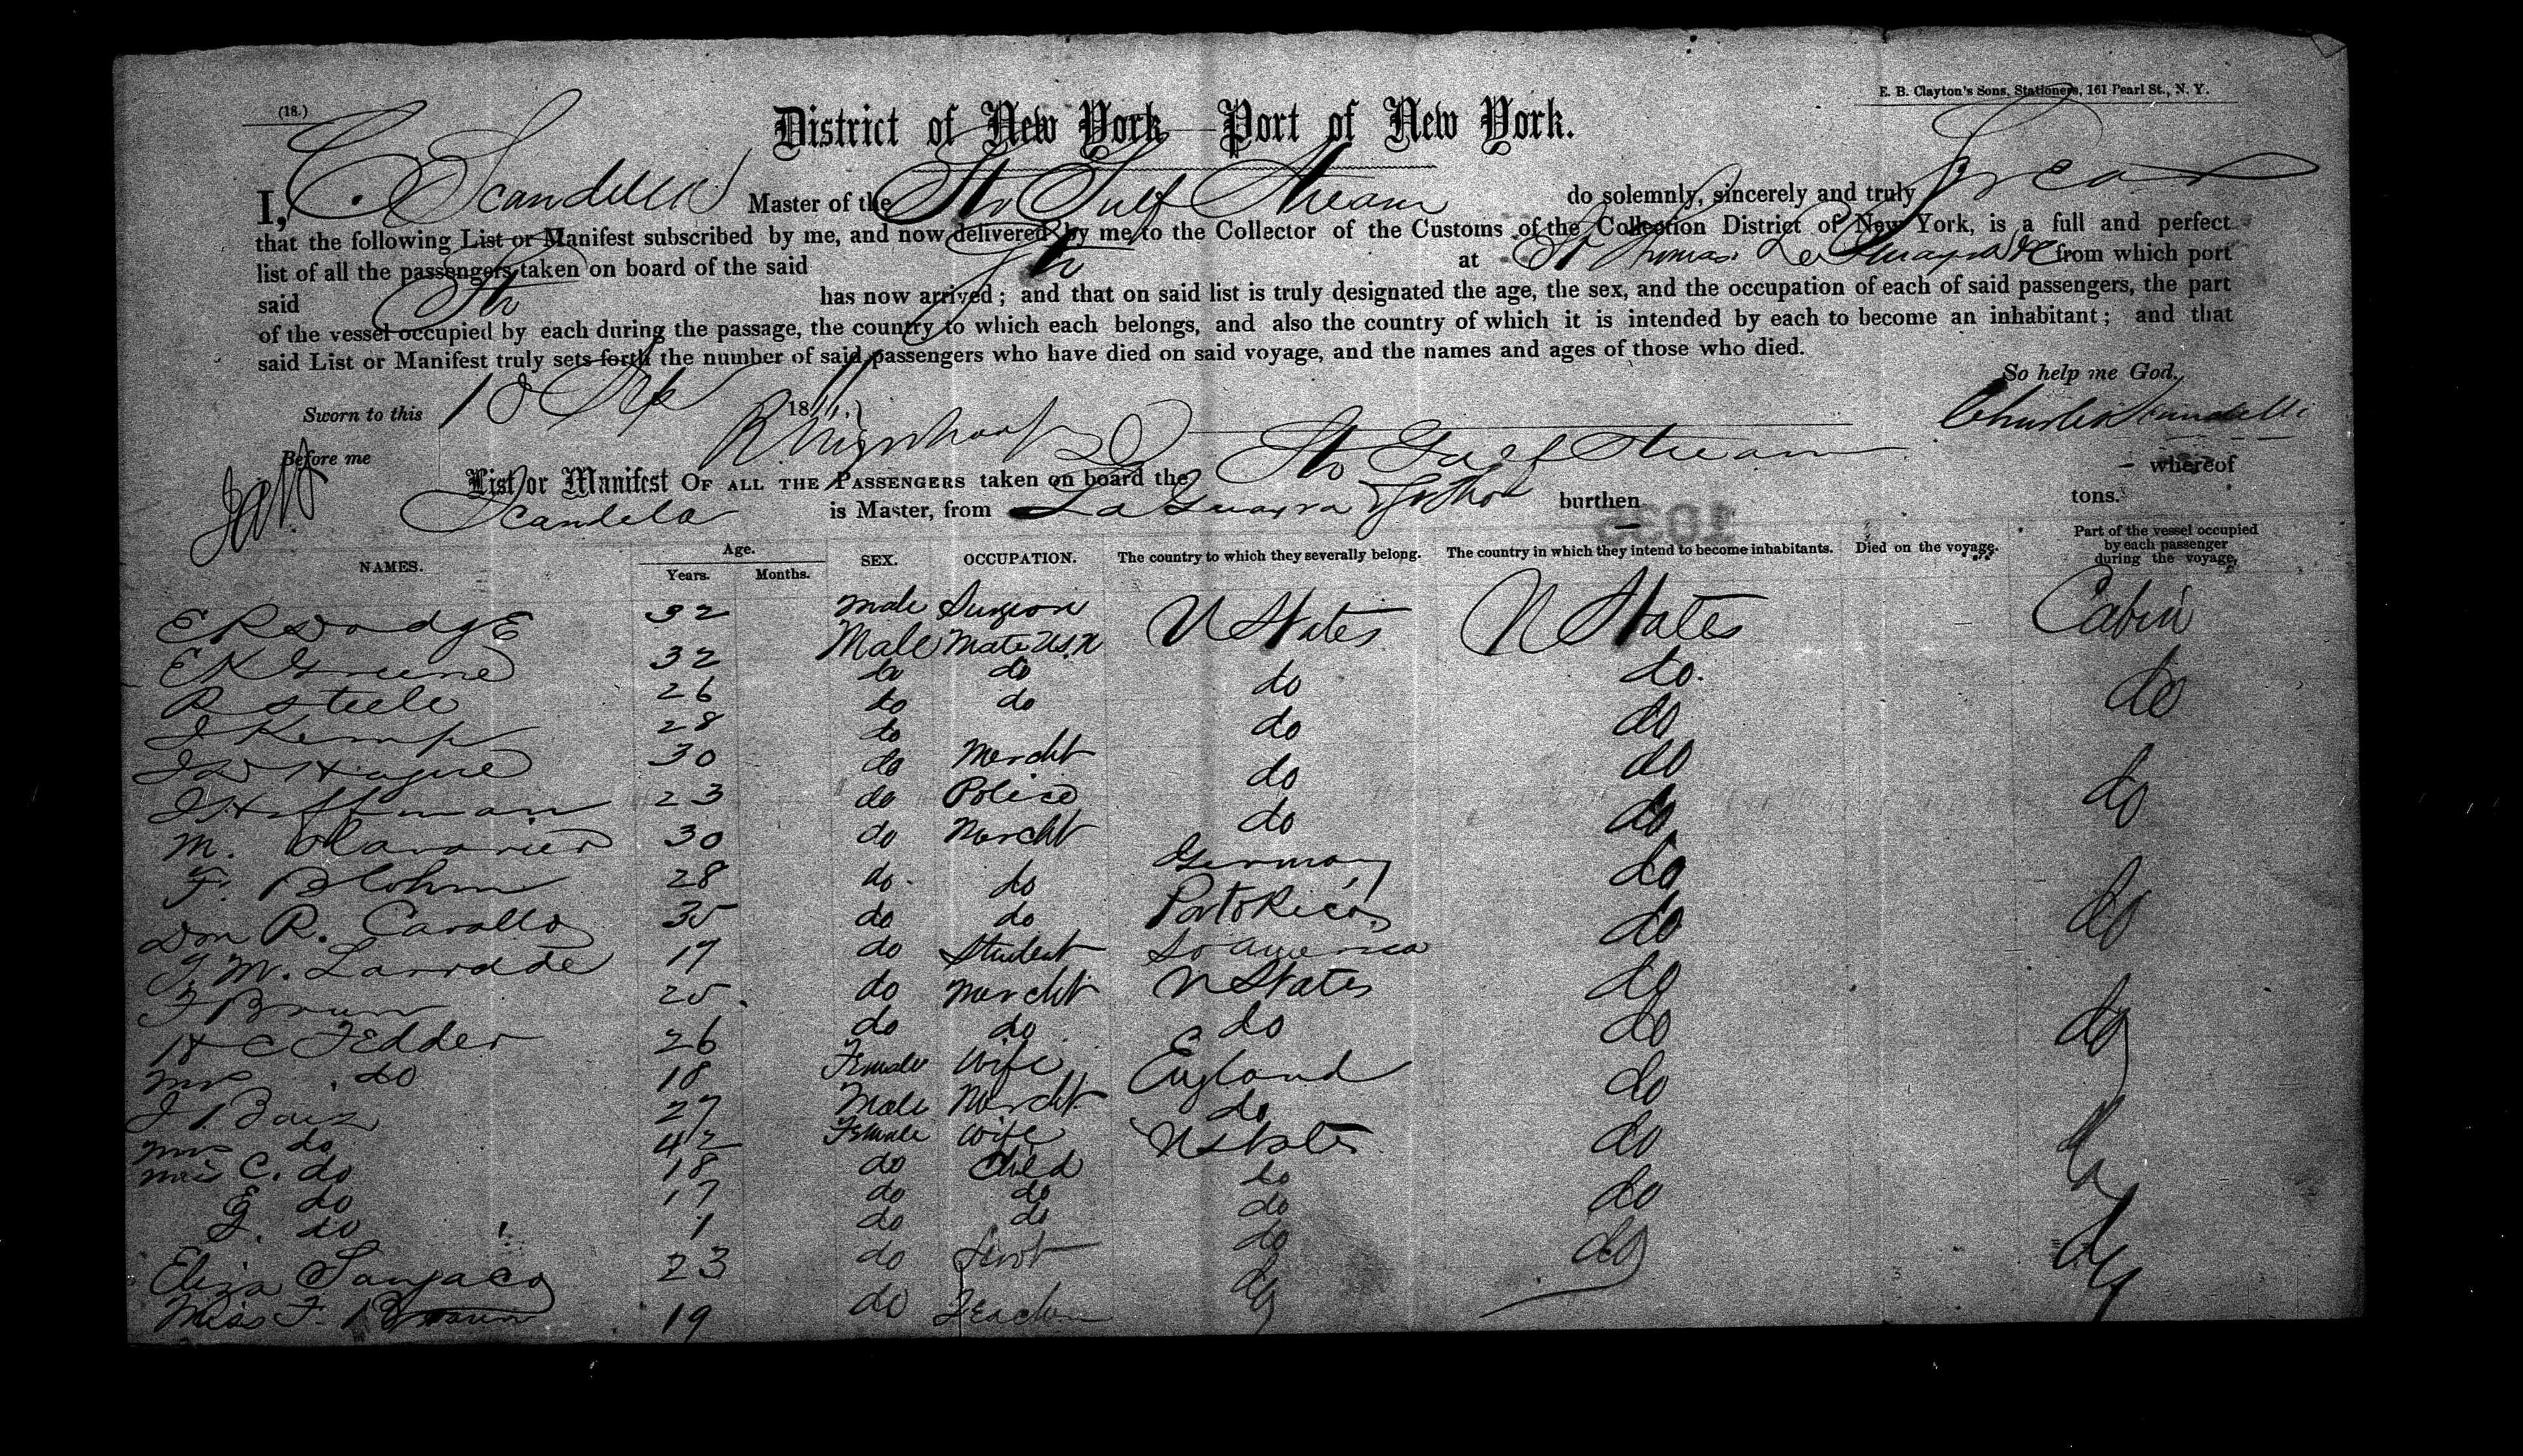 (18.)
E. B. Clayton's Sons, Stationers, 161 Pearl St., N. Y.
District of New York Port of New York.
I, C. Scandella Master of the Str Gulf Stream do solemnly, sincerely and truly swear
that the following List or Manifest subscribed by me, and now delivered by me to the Collector of the Customs of the Collection District of New York, is a full and perfect
list of all the passengers taken on board of the said Str at St Thomas La Guayra &c from which port
said Str has now arrived; and that on said list is truly designated the age, the sex, and the occupation of each of said passengers, the part
of the vessel occupied by each during the passage, the country to which each belongs, and also the country of which it is intended by each to become an inhabitant; and that
said List or Manifest truly sets forth the number of said passengers who have died on said voyage, and the names and ages of those who died.
So help me God.
Sworn to this 18 Sep 18
Charles
Before me
List or Manifest OF ALL THE PASSENGERS taken on board the Str Gulf Stream whereof
Scandela is Master, from La Guayra burthen tons.
1033
NAMES. Age. Years. Months. SEX. OCCUPATION. The country to which they severally belong. The country in which they intend to become inhabitants. Died on the voyage. Part of the vessel occupied by each passenger during the voyage.
E R Dodge 32 Male Surgeon U States U States Cabin
E K Greene 32 Male Mate U.S.N do do. do
R Steele 26 do do do do
J Kemp 28 do do do do
J D Hague 30 do Mercht do do do
J Hoffman 23 do Police
M. 30 do Mercht Germany do
F. Blohm 28 do do Porto Rico do do
Don R. Cavallo 35 do do So America do
J M. Larodde 19 do Student U States do
F Brun 25 do Mercht do do do
H C Fedder 26 do do England do
Mrs do 18 Female Wife do do
J 27 Male Mercht U States do
Mrs do 42 Female Wife do do
Mis C. do 18 do Child do
E do 17 do do do
J. do 1 do do
Eliza 23 do Servt do do
Miss F. Braun 19 do Teacher do